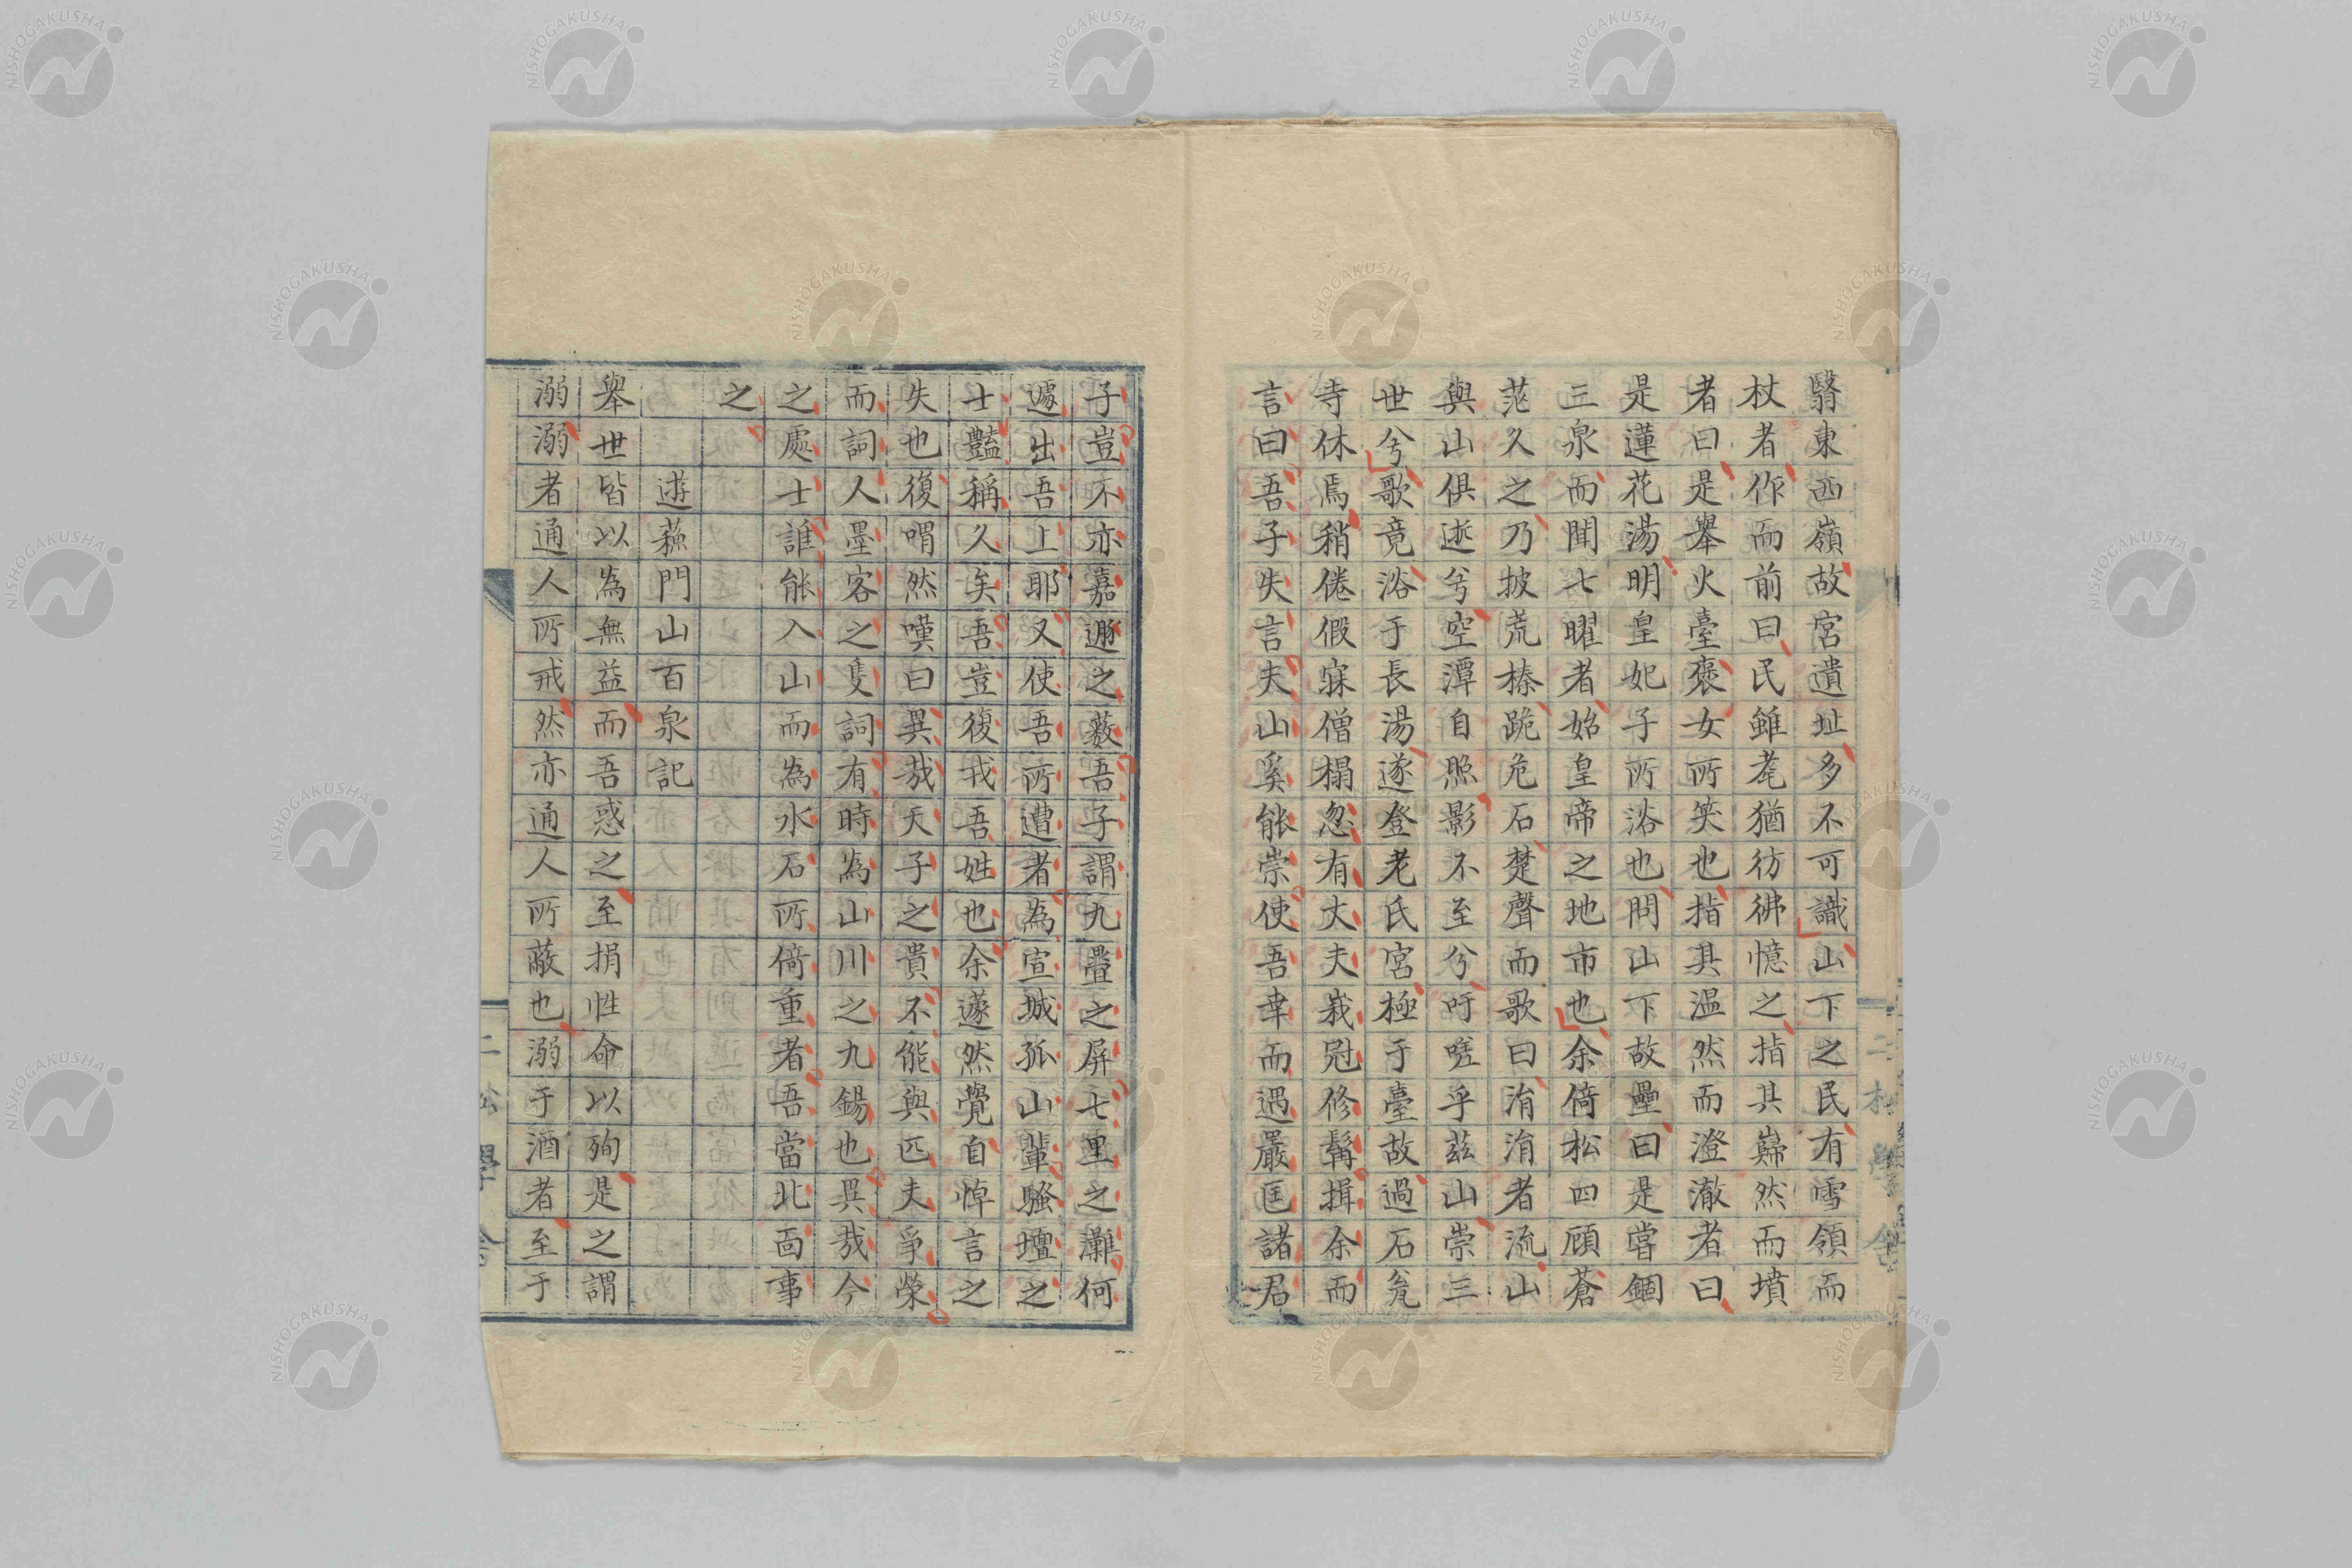 翳東西嶺故宮遺址多不可識山下之民有雪領而
杖者作而前曰民雖耄猶彷彿憶之指其巋然而墳
者曰是舉火臺褒女所笑也指其温然而澄澈者曰
是蓮花湯明皇妃子所浴也問山下故壘曰是嘗錮
三泉而閧七曜者始皇帝之地市也余倚松四顧蒼
茫久之乃披荒榛跪危石楚聲而歌曰洧洧者流山
與山俱逝兮空潭自照影不至兮吁嗟乎茲山崇三
世兮歌竟浴于長湯遂登老氏宮極于臺故過石瓮
寺休焉稍倦假寐僧榻忽有丈夫峩冠修髯揖余而
言曰吾子失言夫山奚能崇使吾幸而遇嚴匡諸君
子豈不亦嘉遯之藪吾子謂九疊之屏七里之灘何
遽出吾上耶又使吾所遭者為宣城孤山輩騷壇之
士豔稱久矣吾豈復我吾姓也余蘧然覺自悼言之
失也復喟然嘆曰異哉天子之貴不能與匹夫爭榮
而詞人墨客之隻詞有時為山川之九錫也異哉今
之處士誰能入山而為水石所倚重者吾當北面事
之
遊蘇門山百泉記
舉世皆以為無益而吾惑之至捐性命以殉是之謂
溺溺者通人所戒然亦通人所蔽也溺于酒者至于
二松學舍
二松學舍
NISHOGAKUSHA